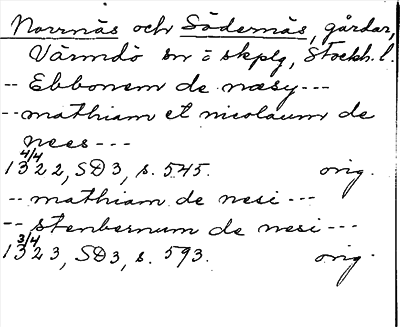 Norrnäs och Södernäs, gårdar,
Värmdö sn o skplg, Stockh. l.
-- Ebbonem de næsy ---
-- mathiam et nicolaum de
nees ---
4/4
1322, SD3, s. 545. orig.
-- mathiam de nesi ---
-- stenbernum de nesi ---
3/4
1323, SD3, s. 593. orig.